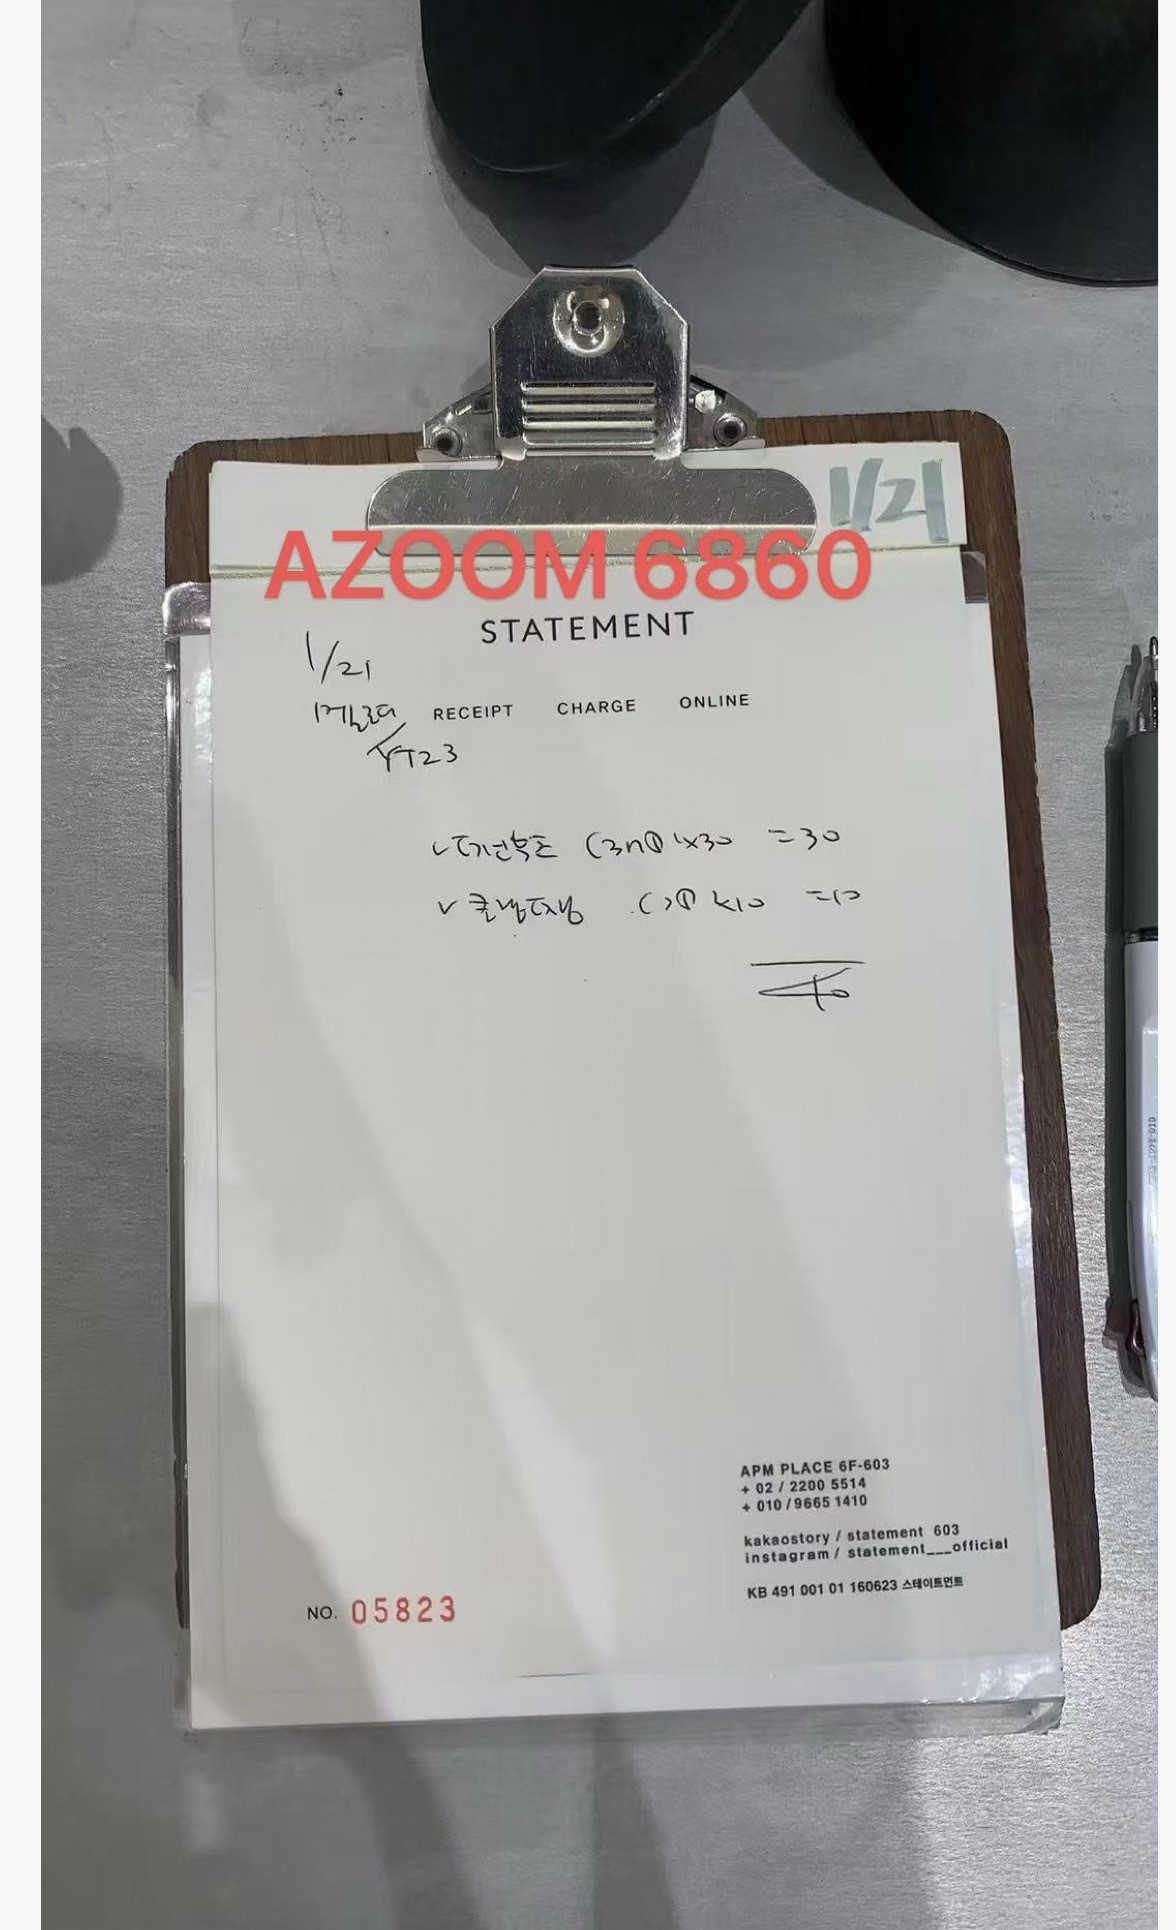 1/21
AZOOM 6860
STATEMENT
1/21
RECEIPT CHARGE ONLINE
YT23
1x30 =30
x10 =10
40
APM PLACE 6F-603
+ 02 / 2200 5514
+ 010 / 9665 1410
kakaostory / statement 603
instagram / statement___official
KB 491 001 01 160623 스테이트먼트
NO. 05823